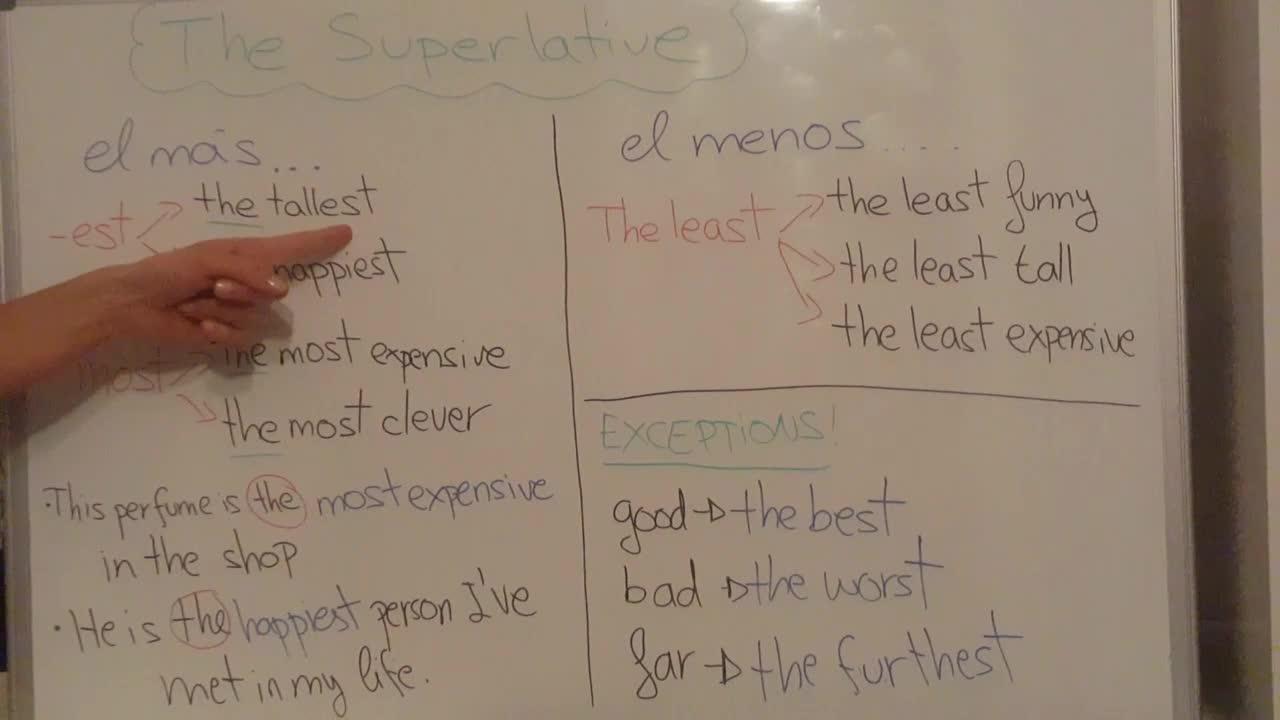 The Superlative
el más...
-est
the tallest
happiest
most
the most expensive
the most clever
· This perfume is the most expensive
in the shop
· He is the happiest person I've
met in my life.
el menos.....
The least
the least funny
the least tall
the least expensive
EXCEPTIONS!
good → the best
bad → the worst
far → the furthest